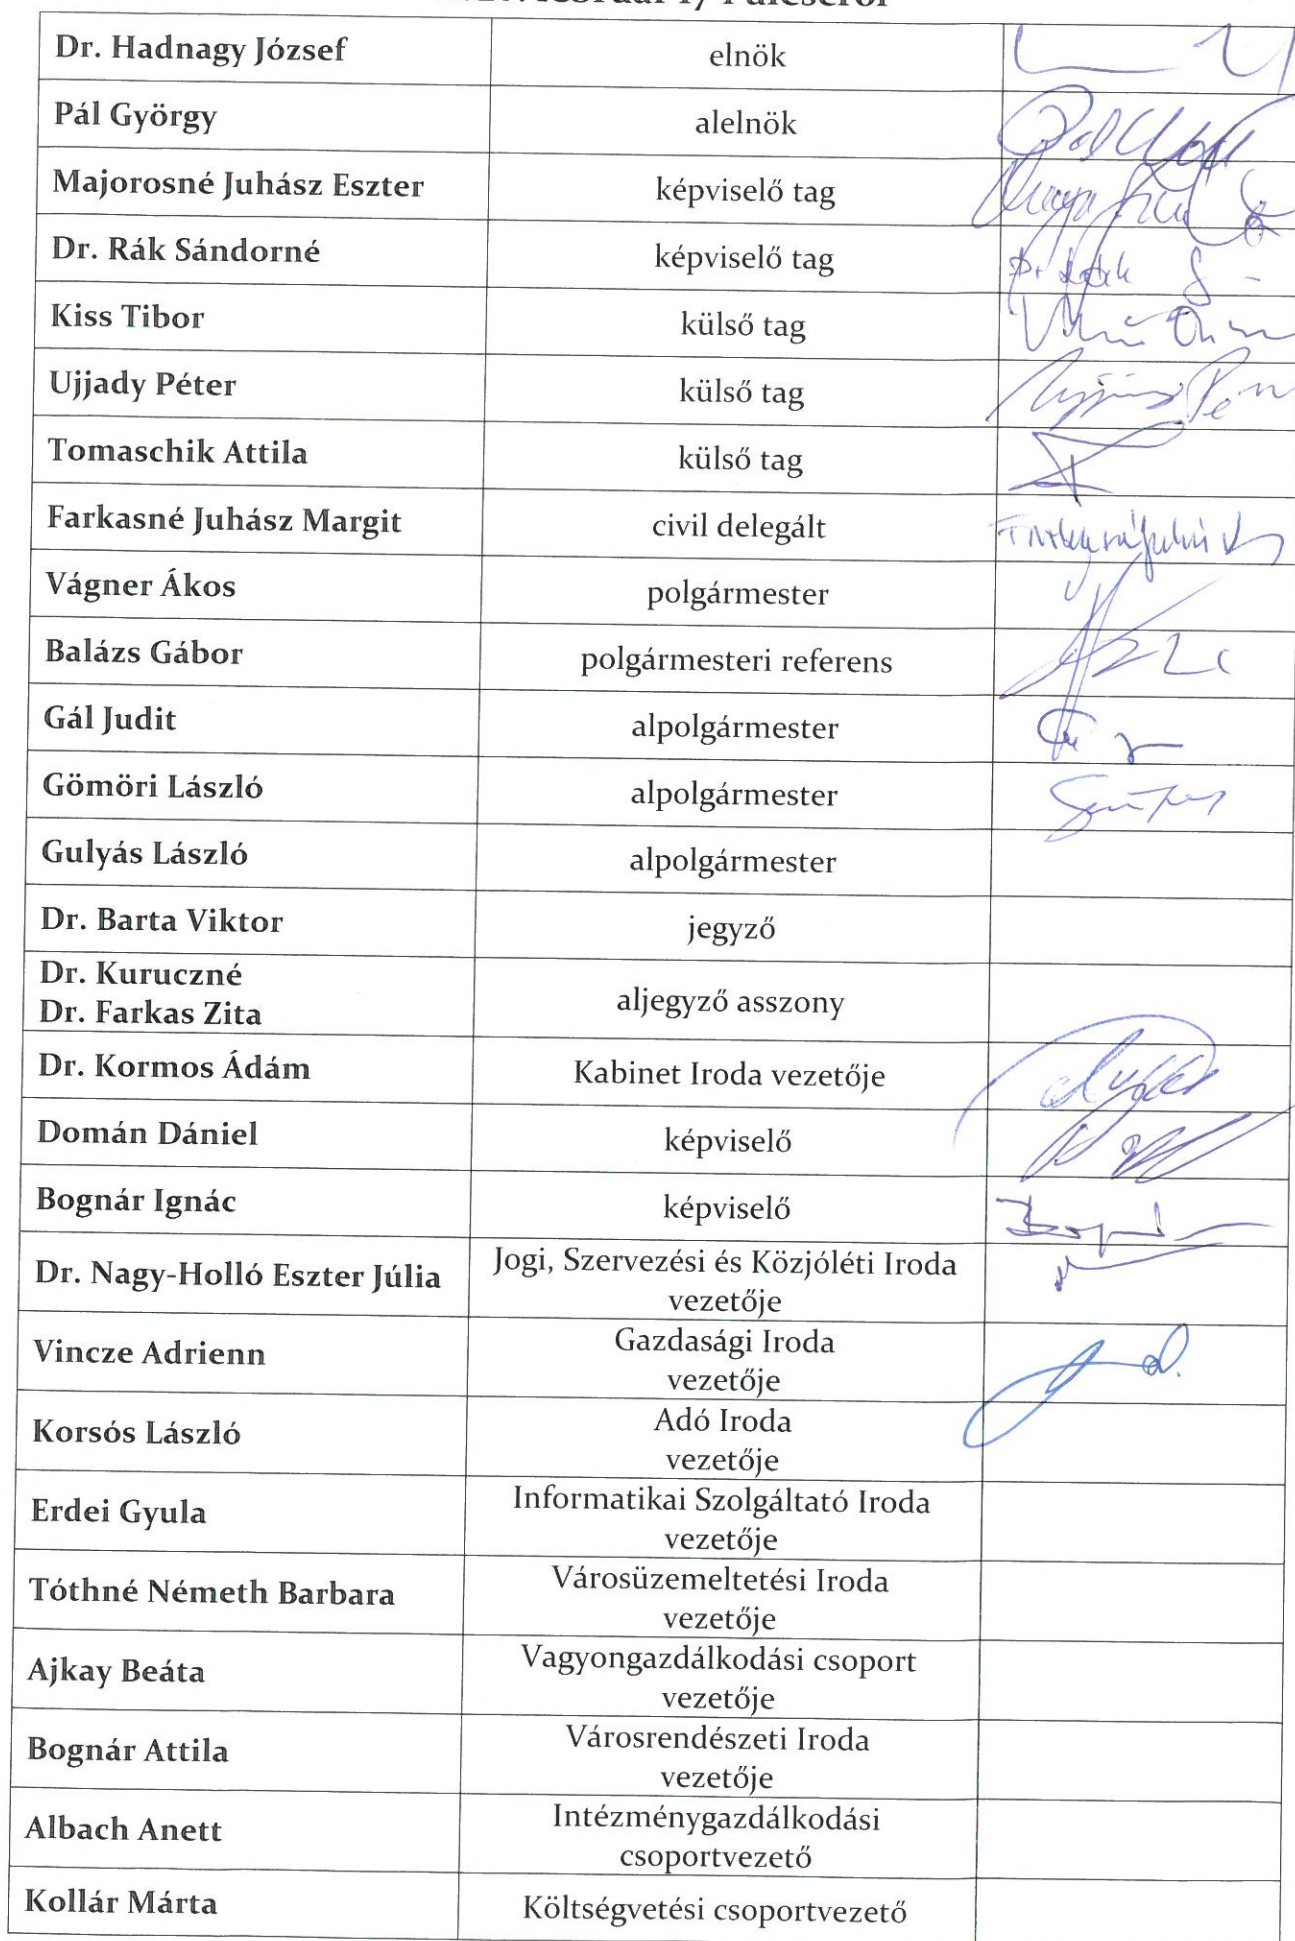 Dr. Hadnagy József elnök
Pál György alelnök
Majorosné Juhász Eszter képviselő tag
Dr. Rák Sándorné képviselő tag
Kiss Tibor külső tag
Ujjady Péter külső tag
Tomaschik Attila külső tag
Farkasné Juhász Margit civil delegált
Vágner Ákos polgármester
Balázs Gábor polgármesteri referens
Gál Judit alpolgármester
Gömöri László alpolgármester
Gulyás László alpolgármester
Dr. Barta Viktor jegyző
Dr. Kuruczné
Dr. Farkas Zita aljegyző asszony
Dr. Kormos Ádám Kabinet Iroda vezetője
Domán Dániel képviselő
Bognár Ignác képviselő
Dr. Nagy-Holló Eszter Júlia Jogi, Szervezési és Közjóléti Iroda
vezetője
Vincze Adrienn Gazdasági Iroda
vezetője
Korsós László Adó Iroda
vezetője
Erdei Gyula Informatikai Szolgáltató Iroda
vezetője
Tóthné Németh Barbara Városüzemeltetési Iroda
vezetője
Ajkay Beáta Vagyongazdálkodási csoport
vezetője
Bognár Attila Városrendészeti Iroda
vezetője
Albach Anett Intézménygazdálkodási
csoportvezető
Kollár Márta Költségvetési csoportvezető